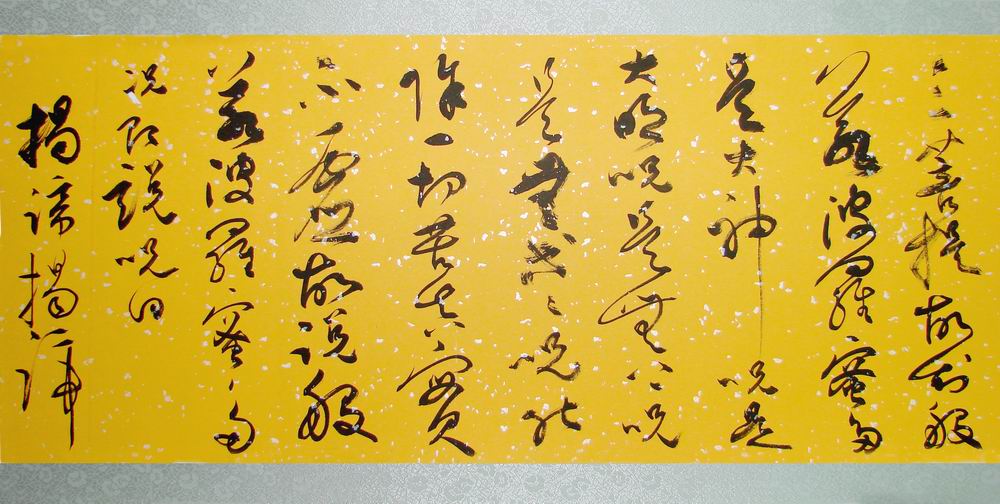 三菩提故知般
若波羅蜜多
是大神咒是
大明咒是無上咒
是無等々咒能
除一切苦真實
不虛故說般
若波羅蜜多
咒即說咒曰
揭諦揭諦